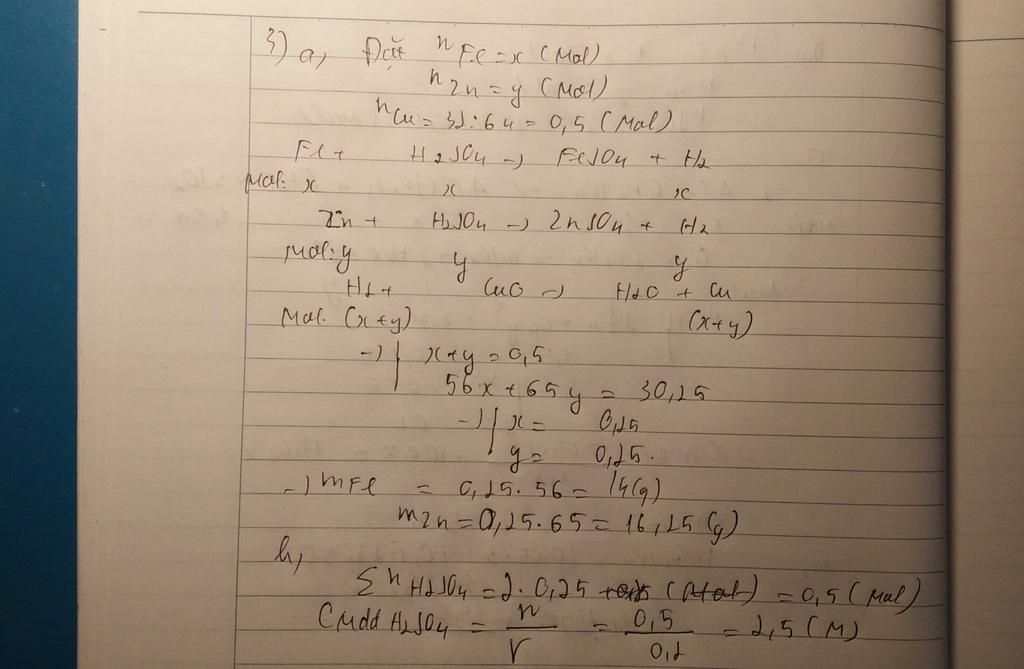 3) a, Đặt nFe = x (Mol)
nZn = y (Mol)
nCu = 32 : 64 = 0,5 (Mol)
Fe + H2SO4 -> FeSO4 + H2
Mol: x x x
Zn + H2SO4 -> ZnSO4 + H2
Mol: y y y
H2 + CuO -> H2O + Cu
Mol: (x+y) (x+y)
-> | x+y = 0,5
56x + 65y = 30,25
-> | x = 0,25
y = 0,25.
-> mFe = 0,25. 56 = 14(g)
mZn = 0,25. 65 = 16,25 (g)
b,
Σ nH2SO4 = 2. 0,25 (Mol) = 0,5 (Mol)
CMdd H2SO4 = n/V = 0,5/0,2 = 2,5 (M)